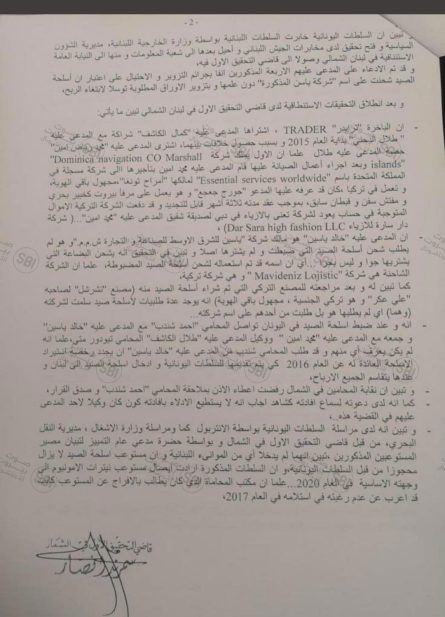 - 2 -
و تبين ان السلطات اليونانية خابرت السلطات اللبنانية بواسطة وزارة الخارجية اللبنانية، مديرية الشؤون
السياسية و فتح تحقيق لدى مخابرات الجيش اللبناني و أحيل بعدها الى شعبة المعلومات و منها الى النيابة العامة
الاستئنافية في لبنان الشمالي وصولا الى قاضي التحقيق الاول فيه،
و قد تم الادعاء على المدعى عليهم الاربعة المذكورين انفا بجرائم التزوير و الاحتيال على اعتبار ان أسلحة
الصيد شحنت على اسم "شركة ياسين المذكورة" دون علمها و بتزوير الاوراق المطلوبة توسلا لابتغاء الربح،
و بعد انطلاق التحقيقات الاستنطاقية لدى قاضي التحقيق الاول في لبنان الشمالي تبين ما يأتي:
- ان الباخرة "ترايدر" TRADER ، اشتراها المدعى عليه "كمال الكاشف" شراكة مع المدعى عليه
" طلال" بداية العام 2015 و بسبب حصول خلافات بينهما، اشترى المدعى عليه "محمد أمين"
حصة المدعى عليه طلال علما ان الاول يملك شركة "Dominica navigation CO Marshall
islands" وبعد اجراء أعمال الصيانة عليها قام المدعى عليه محمد امين بتأجيرها الى شركة مسجلة في
المملكة المتحدة باسم "Essential services worldwide" لمالكها "امزاح تونغا"،مجهول باقي الهوية،
و تعمل في تركيا ،كان قد عرفه عليها المدعو "جورج" و هو يعمل على مرفأ بيروت كخبير بحري
و مفتش سفن و قبطان سابق، بموجب عقد مدته ثلاثة أشهر قابل للتجديد و قد دفعت الشركة التركية الاموال
المتوجبة في حساب يعود لشركة تعنى بالازياء في دبي لصديقة شقيق المدعى عليه "محمد امين"...( شركة
دار سارة للازياء Dar Sara high fashion LLC) ،
- ان المدعى عليه "خالد ياسين" هو مالك شركة "ياسين للشرق الاوسط للصناعة و التجارة ش.م.م" و هو لم
يطلب شحن أسلحة الصيد التي ضبطت و لم يشترها اصلا و تبين في التحقيق انه يشحن البضاعة التي
يشتريها جوا و ليس بحرا ...أي ان اسمه قد تم استعماله لشحن اسلحة الصيد المضبوطة، علما ان الشركة
الشاحنة هي شركة " Mavideniz Lojistic" و هي شركة تركية،
كما تبين له و بعد مراجعته للمصنع التركي التي تم شراء أسلحة الصيد منه (مصنع "تشرشل" لصاحبه
"علي عكر" و هو تركي الجنسية ، مجهول باقي الهوية) انه يوجد عدة طلبيات لأسلحة صيد سلمت لشركته
(وهما) اي لم يطلبها هو بل طلبت من أحدهم على اسم شركته...
- و انه وعند ضبط أسلحة الصيد في اليونان تواصل المحامي "احمد شندب" مع المدعى عليه "خالد ياسين"
و جمعه مع المدعى عليه "محمد امين " ووكيل المدعى عليه "طلال الكاشف" المحامي تيودور متى،علما انه
لم يكن يعرف أي منهم و قد طلب المحامي شندب من المدعى عليه "خالد ياسين" ان يجدد رخصة استيراد
الاسلحة العائدة له عن العام 2016 كي يتم تقديمها للسلطات اليونانية و ادخال اسلحة الصيد الى لبنان و
عندها يتقاسم الجميع الارباح،
- و تبين ان نقابة المحامين في الشمال رفضت اعطاء الاذن بملاحقة المحامي "احمد شندب" و صدق القرار،
- كما انه لدى دعوته لسماع افادته كشاهد اجاب انه لا يستطيع الادلاء بافادته كون كان وكيلا لاحد المدعى
عليهم في القضية هذه .
- و تبين انه لدى مراسلة السلطات اليونانية بواسطة الانتربول كما ومراسلة وزارة الاشغال ، مديرية النقل
البحري، من قبل قاضي التحقيق الاول في الشمال و بواسطة حضرة مدعي عام التمييز لتبيان مصير
المستوعبين المذكورين ،تبين انهما لم يدخلا أي من الموانىء اللبنانية و ان مستوعب اسلحة الصيد لا يزال
محجوزا من قبل السلطات اليونانية،و ان السلطات المذكورة ارادت ايصال مستوعب نيترات الامونيوم الى
وجهته الاساسية في العام 2020...علما ان مكتب المحاماة الذي كان يطالب بالافراج عن المستوعب كانت
قد اعرب عن عدم رغبته في استلامه في العام 2017،
قاضي التحقيق الاول في الشمال